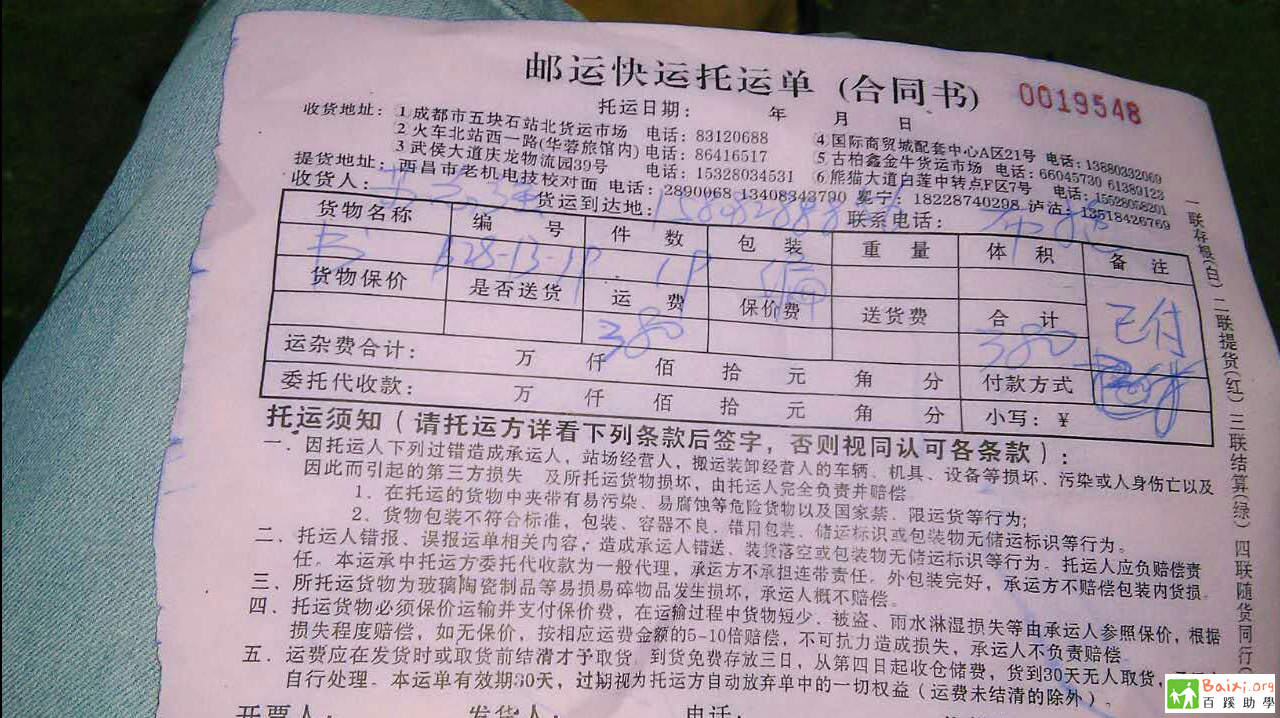 邮运快运托运单 (合同书) 0019548
托运日期： 年 月 日
收货地址： 1 成都市五块石站北货运市场 电话：83120688 4 国际商贸城配套中心A区21号 电话：13880332069
2 火车北站西一路(华蓉旅馆内) 电话：86416517 5 古柏鑫金牛货运市场 电话：66045730 61389123
3 武侯大道庆龙物流园39号 电话：15328034531 6 熊猫大道白莲中转点F区7号 电话：15528058201
提货地址：西昌市老机电技校对面 电话：2890068 13408343790 冕宁：18228740298 泸沽：13518426769
收货人： 货运到达地： 联系电话：
货物名称 编 号 件 数 包 装 重 量 体 积 备 注
书 628-13-1P 1P
货物保价 是否送货 运 费 保价费 送货费 合 计 已付
380 380
运杂费合计： 万 仟 佰 拾 元 角 分 付款方式
委托代收款： 万 仟 佰 拾 元 角 分 小写：¥
托运须知（请托运方详看下列条款后签字，否则视同认可各条款）:
一．因托运人下列过错造成承运人，站场经营人，搬运装卸经营人的车辆、机具、设备等损坏、污染或人身伤亡以及
因此而引起的第三方损失 及所托运货物损坏，由托运人完全负责并赔偿
1．在托运的货物中夹带有易污染、易腐蚀等危险货物以及国家禁、限运货等行为;
2．货物包装不符合标准，包装、容器不良、错用包装、储运标识或包装物无储运标识等行为。
二．托运人错报、误报运单相关内容；造成承运人错送、装货落空或包装物无储运标识等行为。托运人应负赔偿责
任。本运承中托运方委托代收款为一般代理，承运方不承担连带责任。外包装完好，承运方不赔偿包装内货损。
三．所托运货物为玻璃陶瓷制品等易损易碎物品发生损坏，承运人概不赔偿。
四．托运货物必须保价运输并支付保价费，在运输过程中货物短少、被盗、雨水淋湿损失等由承运人参照保价，根据
损失程度赔偿，如无保价，按相应运费金额的5-10倍赔偿，不可抗力造成损失，承运人不负责赔偿
五．运费应在发货时或取货前结清才予取货 到货免费存放三日，从第四日起收仓储费，货到30天无人取货，
自行处理。本运单有效期30天，过期视为托运方自动放弃单中的一切权益（运费未结清的除外）.
开票人： 发货人： 电话：
一联存根(白) 二联提货(红) 三联结算(绿) 四联随货同行
Baixi.org
百蹊助學